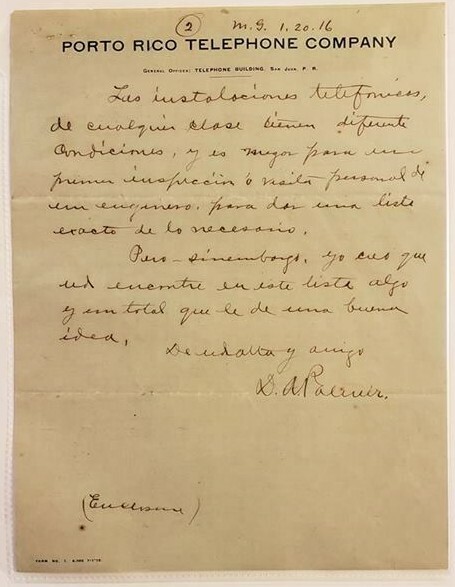 2 M.G. 1.20.16
PORTO RICO TELEPHONE COMPANY
GENERAL OFFICES: TELEPHONE BUILDING, SAN JUAN, P. R.
Las instalaciones telefonicas,
de cualquier clase tienen diferente
condiciones, y es mejor para un
primer inspeccion o visita personal de
un enginero, para dar una lista
exacto de lo necesario.
Pero - sinembargo, yo creo que
ud encontre en este lista algo
y un total que le de una buena
idea,
De ud atta y amigo
D. A. Palmer.
(Enclosure)
FORM NO. 1